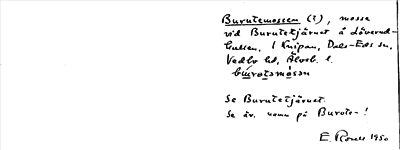 Burutemossen (?), mosse
vid Burutetjärnet å Löverud-
kullen. 1 Knipan, Dals-Eds sn,
Vedbo hd, Älvsb. l.
burotamåsan
Se Burutetjärnet.
Se äv. namn på Buråts-!
E. 1950